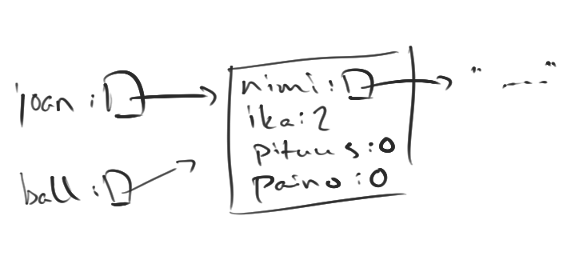 joan:
ball:
nimi: → " ___"
ika: 2
pituus: 0
paino: 0